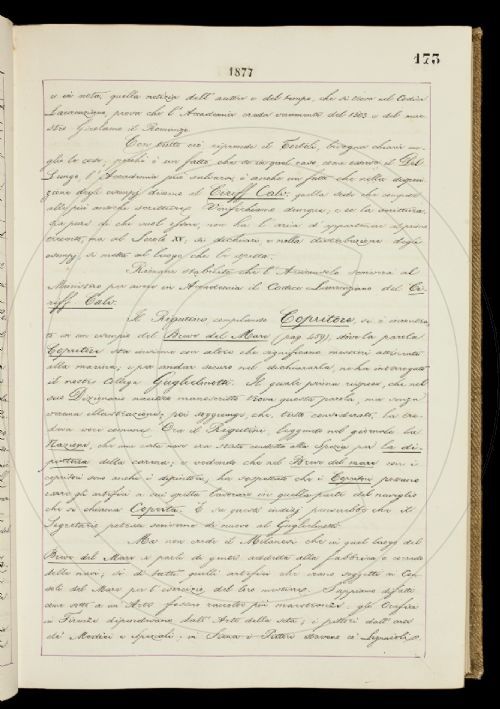 173
1877
e in nota, quella notizia dell' autore e del tempo, che si trova nel Codice
Laurenziano, prova che l' Accademia creda veramente del 1303 e del mae-
stro Girolamo il
Con tutto ciò riprende il bisogna chiarir me-
glio la cosa; perchè è un fatto, che se in quel caso come
Lungo, l' Accademia può è anche un fatto che nella disposi-
zione degli esempj diamo al Ciriff. Calv. quella sede che compete
alle più antiche scritture. Verifichiamo dunque; e se la scrittura,
sia pure di chi vuol essere, non ha l' aria d' appartenere al primo
trecento, ma al Secolo XV, si dichiari, e nella distribuzione degli
esempj si metta al luogo che le spetta.
Rimane stabilito che l' Arciconsolo domandi al
Ministero per avere in Accademia il Codice Laurenziano del Ci-
riff. Calv.
Il Rigutini compilando Copritore, si è incontra-
to in un esempio del Breve del Mare (pag. 489), dove la parola
Copritori sta insieme con altre che significano mestieri attinenti
alla marina; e per andar sicuro nel dichiararla, ne ha interrogato
il nostro Collega Guglielmotti. Il quale prima rispose, che nel
suo Dizionario nautico manoscritto trova questa parola, ma senza
veruna illustrazione; poi soggiunge, che, tutto considerato, la cre-
deva voce comune. Ora il Rigutini, leggendo nel giornale la
Nazione, che una certa nave era stata condotta alla Spezia per la di-
pintura della carena; e vedendo che nel Breve del mare con i
copritori sono anche i dipintori, ha sospettato che i Copritori potessero
essere gli artefici a cui spetta lavorare in quella parte del naviglio
che si chiama Coperta. E su questi indizj penserebbe che il
Segretario potesse scriverne di nuovo al Guglielmotti.
Ma non crede il Milanesi che in quel luogo del
Breve del Mare si parli di gente addetta alla fabbrica e corredo
delle navi; sì di tutti quelli artefici che erano soggetti ai Con-
soli del Mare per l' esercizio del loro mestiere. Sappiamo difatti
che sotto a un' Arte fossero raccolte più maestranze. Gli Orafi
in Firenze dipendevano dall' Arte della seta; i pittori dall' arte
de' Medici e Speziali: in Siena i Pittori stavano co' Lignaioli.